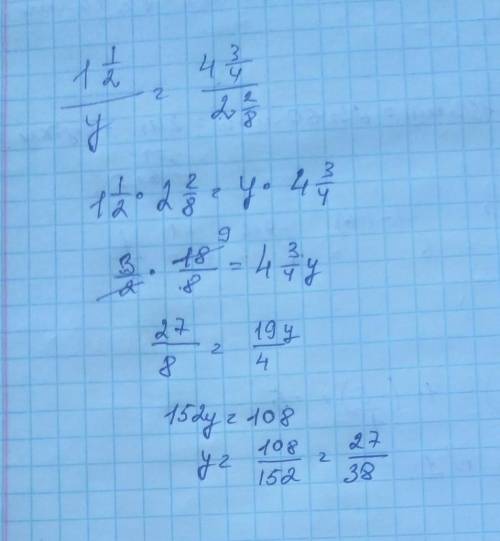 1 1/2 / y = 4 3/4 / 2 2/8
1 1/2 · 2 2/8 = y · 4 3/4
3/2 · 18/8 9 = 4 3/4 y
27/8 = 19y/4
152y = 108
y = 108/152 = 27/38